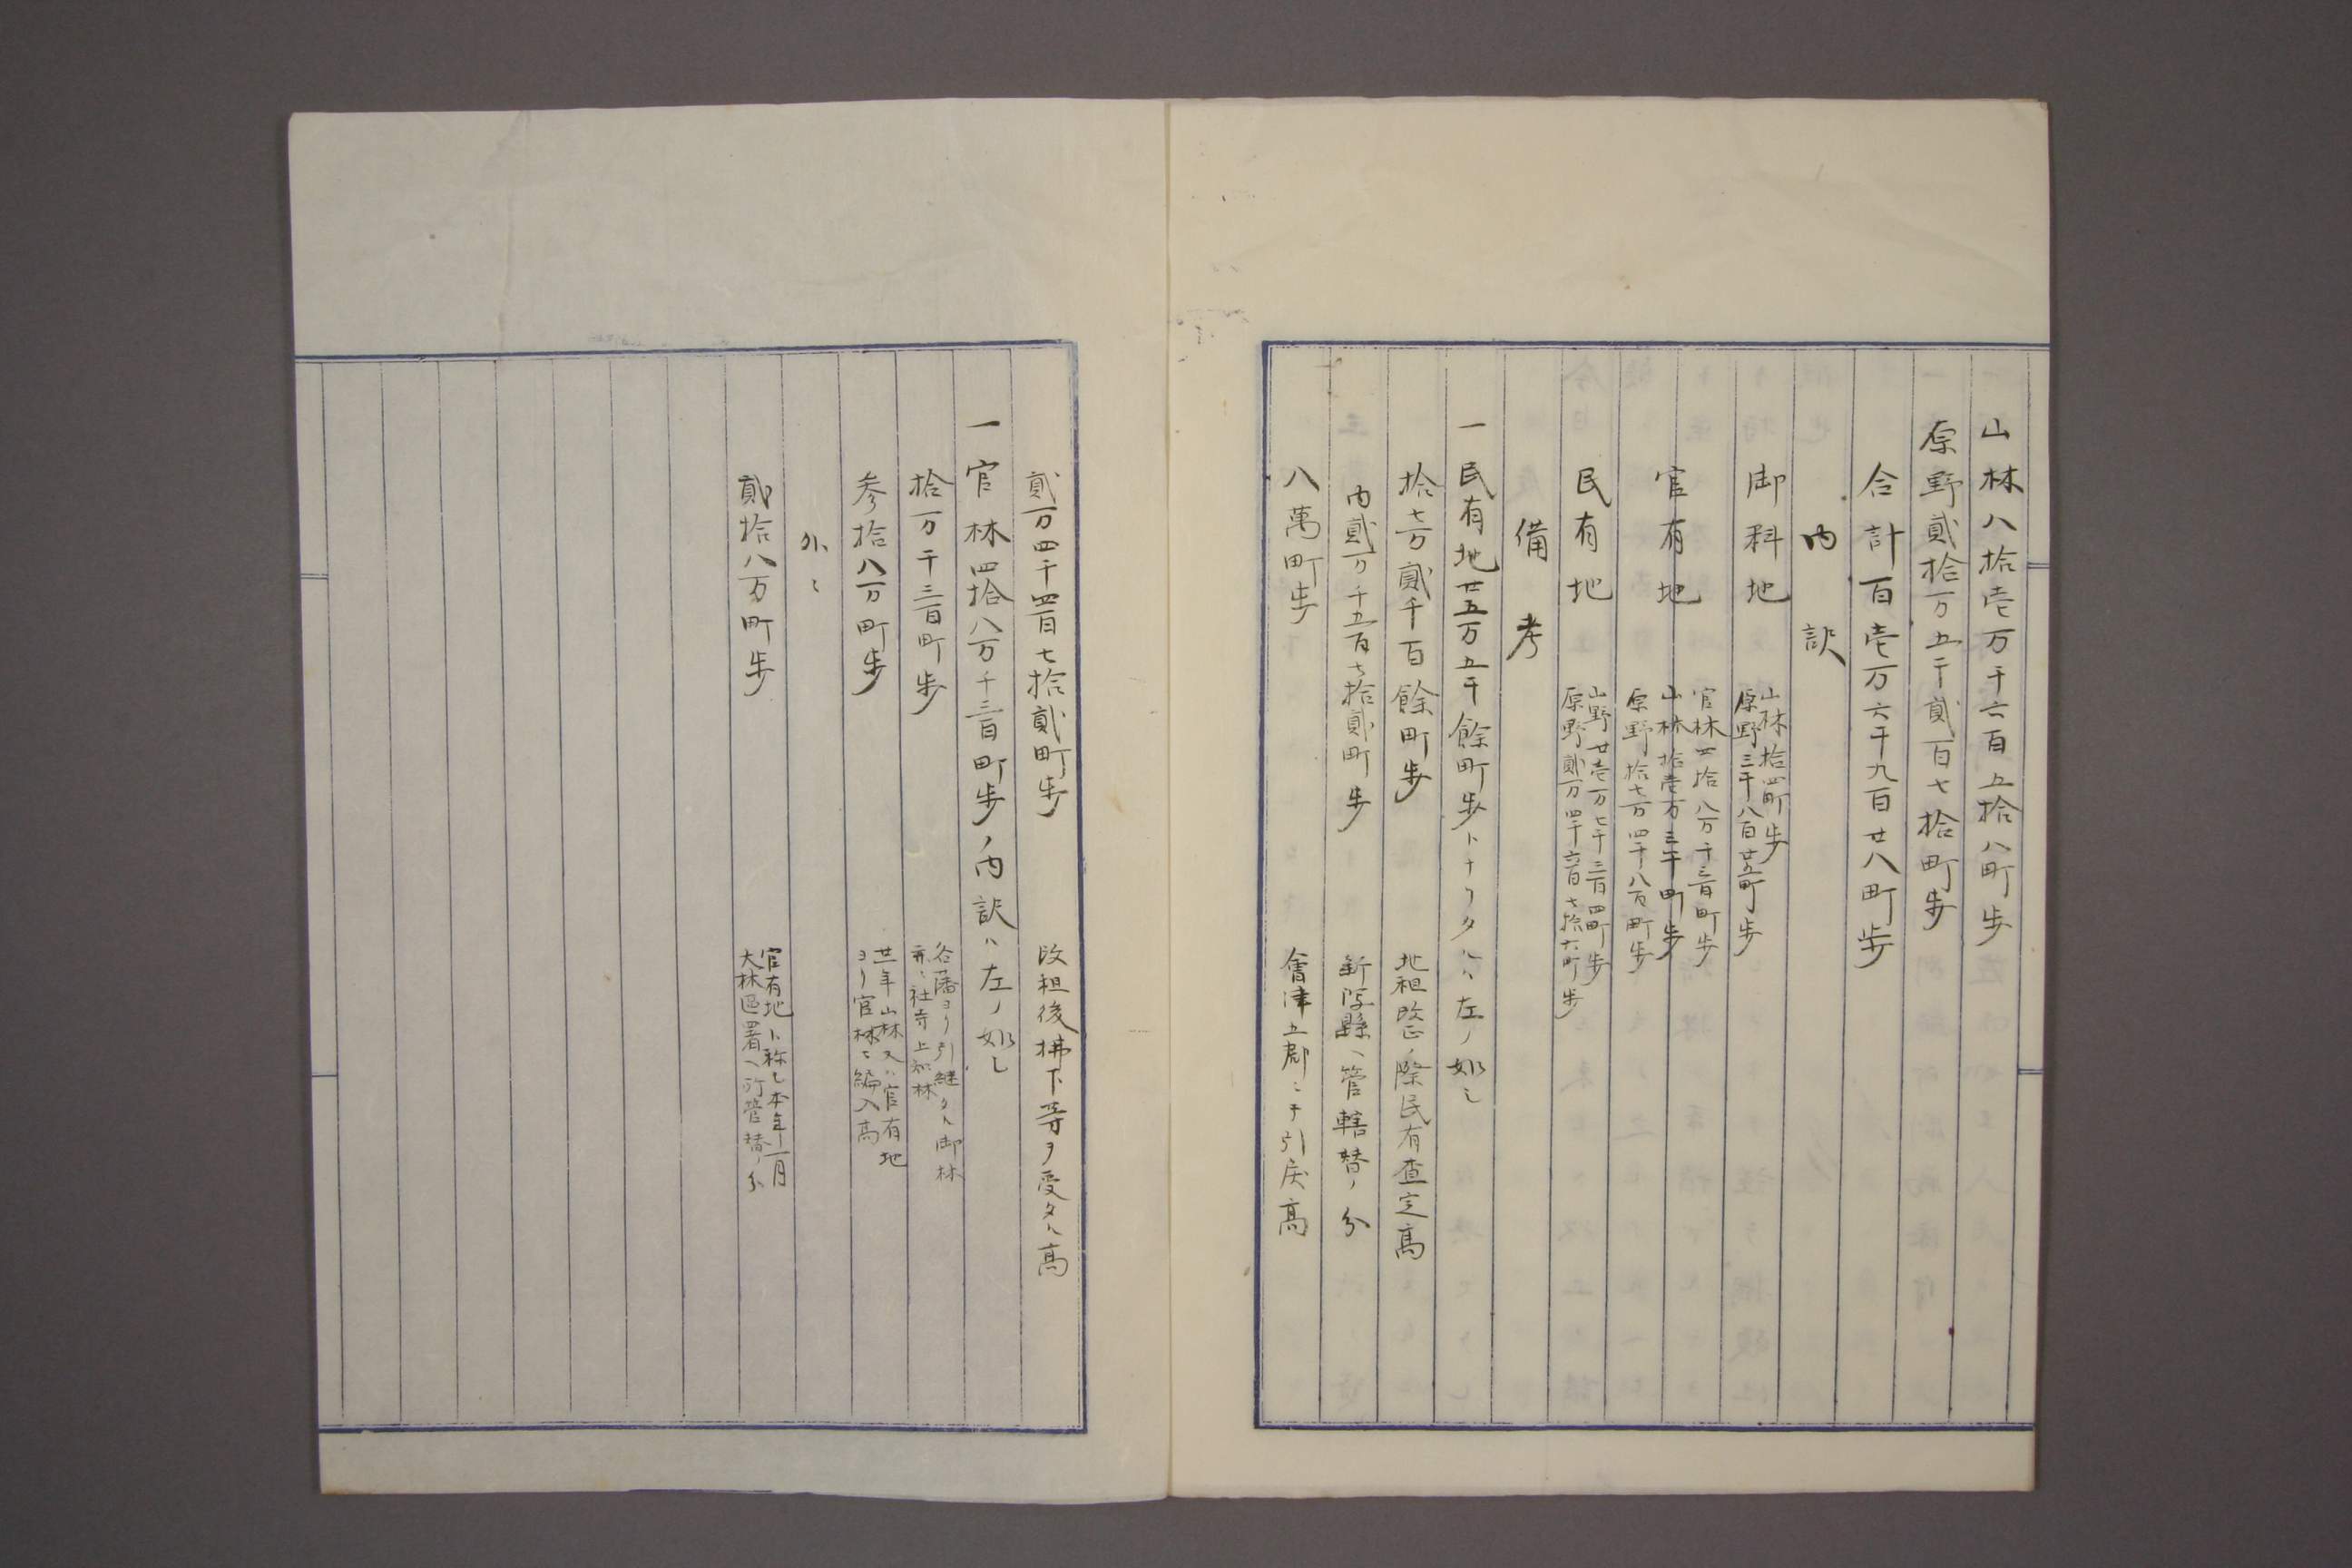 山林八拾壱万千六百五拾八町歩
原野貳拾万五千貳百七拾町歩
合計百壱万六千九百廿八町歩
内訳
御料地
山林拾四町歩
原野三千八百廿五町歩
官有地
官林四拾八万千三百町歩
山林拾壱万三千町歩
原野拾七万四千八百町歩
民有地
山野廿壱万七千三百四町歩
原野貳万四千六百七拾六町歩
備考
一民有地廿五万五千餘町歩トナリタルハ左ノ如シ
拾七万貳千百餘町歩 地租改正ノ際民有査定高
内貳万千五百七拾貳町歩 新潟縣ヘ管轄替ノ分
八萬町歩 會津五郡ニテ引戻高
貳万四千四百七拾貳町歩 改租後拂下等ヲ受タル高
一官林四拾八万千三百町歩ノ内訳ハ左ノ如シ
拾万千三百町歩
各藩ヨリ引継タル御林
並ニ社寺上知林
参拾八万町歩
廿年山林又ハ官有地
ヨリ官林ニ編入高
外ニ
貳拾八万町歩
官有地ト称シ本年一月
大林區署ヘ所管替ノ分